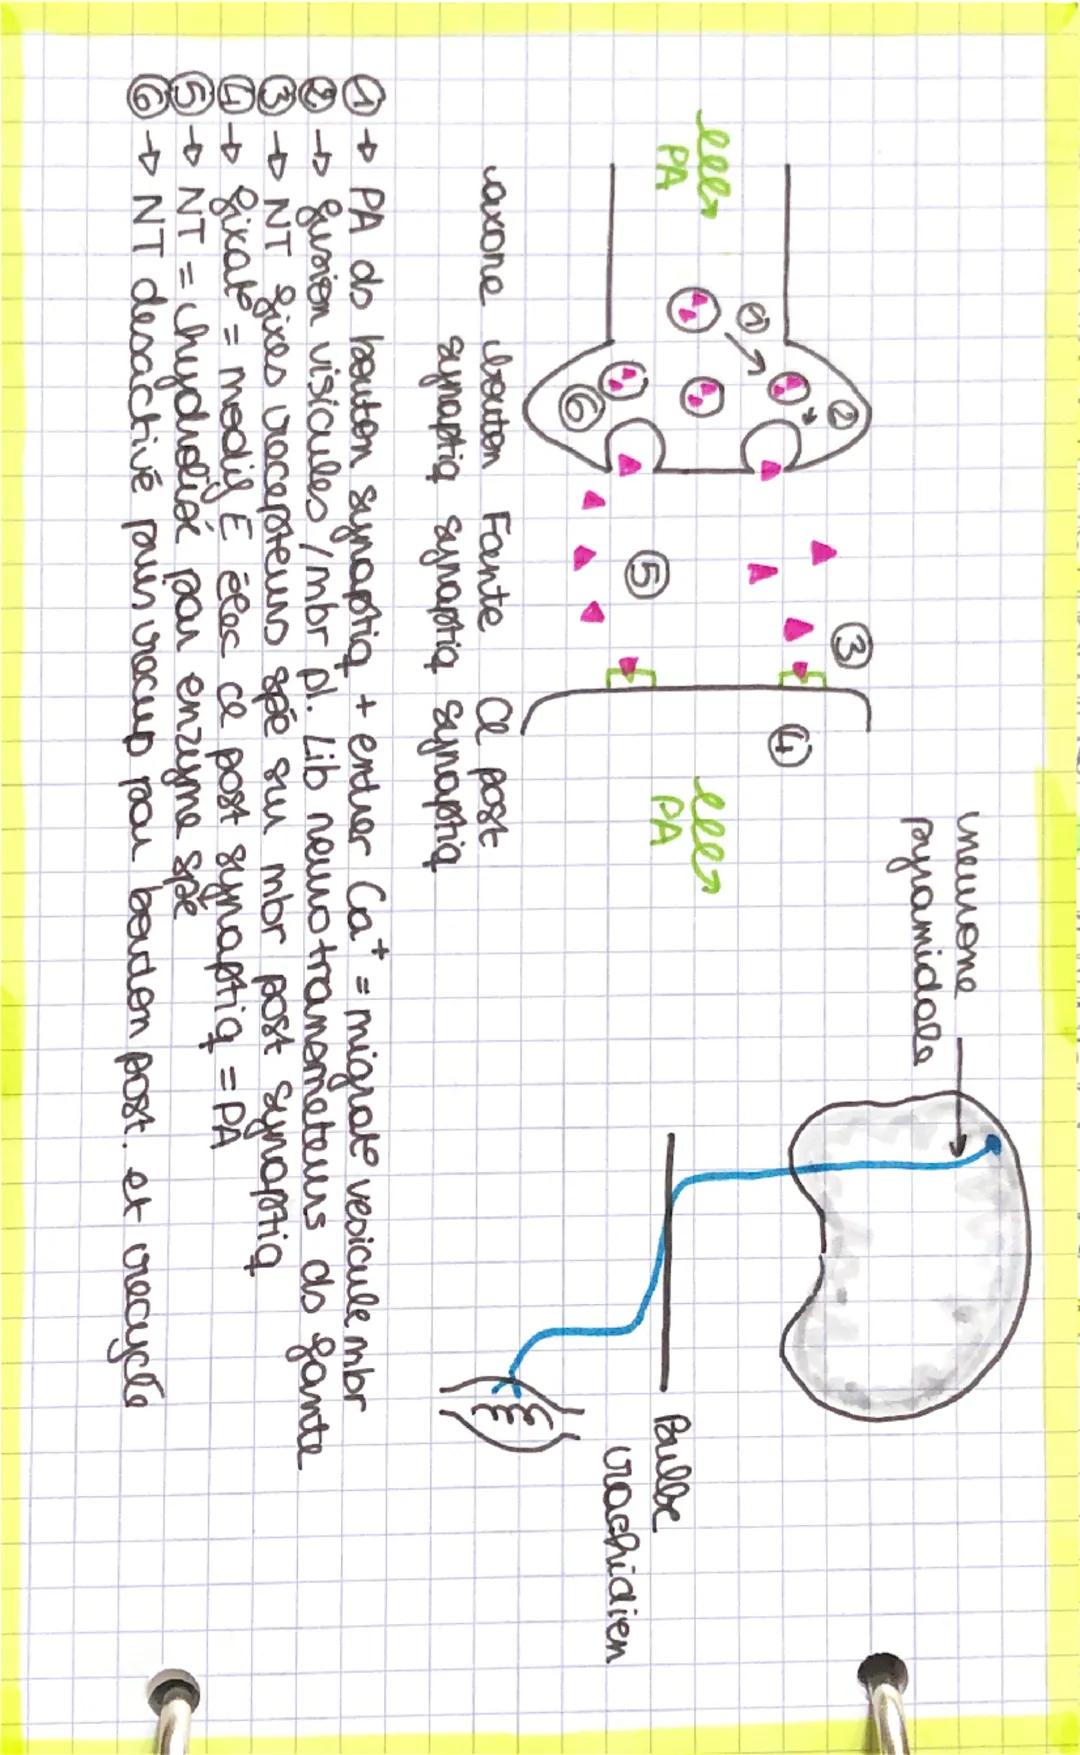 neurone
pyramidale
PA
PA
① ② ③ ④ ⑤ ⑥
Bulbe
rachidien
axone bouton Fante Cl post
synaptiq synaptiq synaptiq
① → PA ds bouton synaptiq + entrer Ca⁺ = migrat° vesicule mbr
② → fusion visicules / mbr pl. Lib neurotransmeteurs ds fante
③ → NT fixes recepteurs spé sur mbr post synaptiq
④ → fixat° = modif E élec cl post synaptiq = PA
⑤ → NT = hydrolisé par enzyme spé
⑥ → NT desactivé puis recup par bouton post. et recyclé